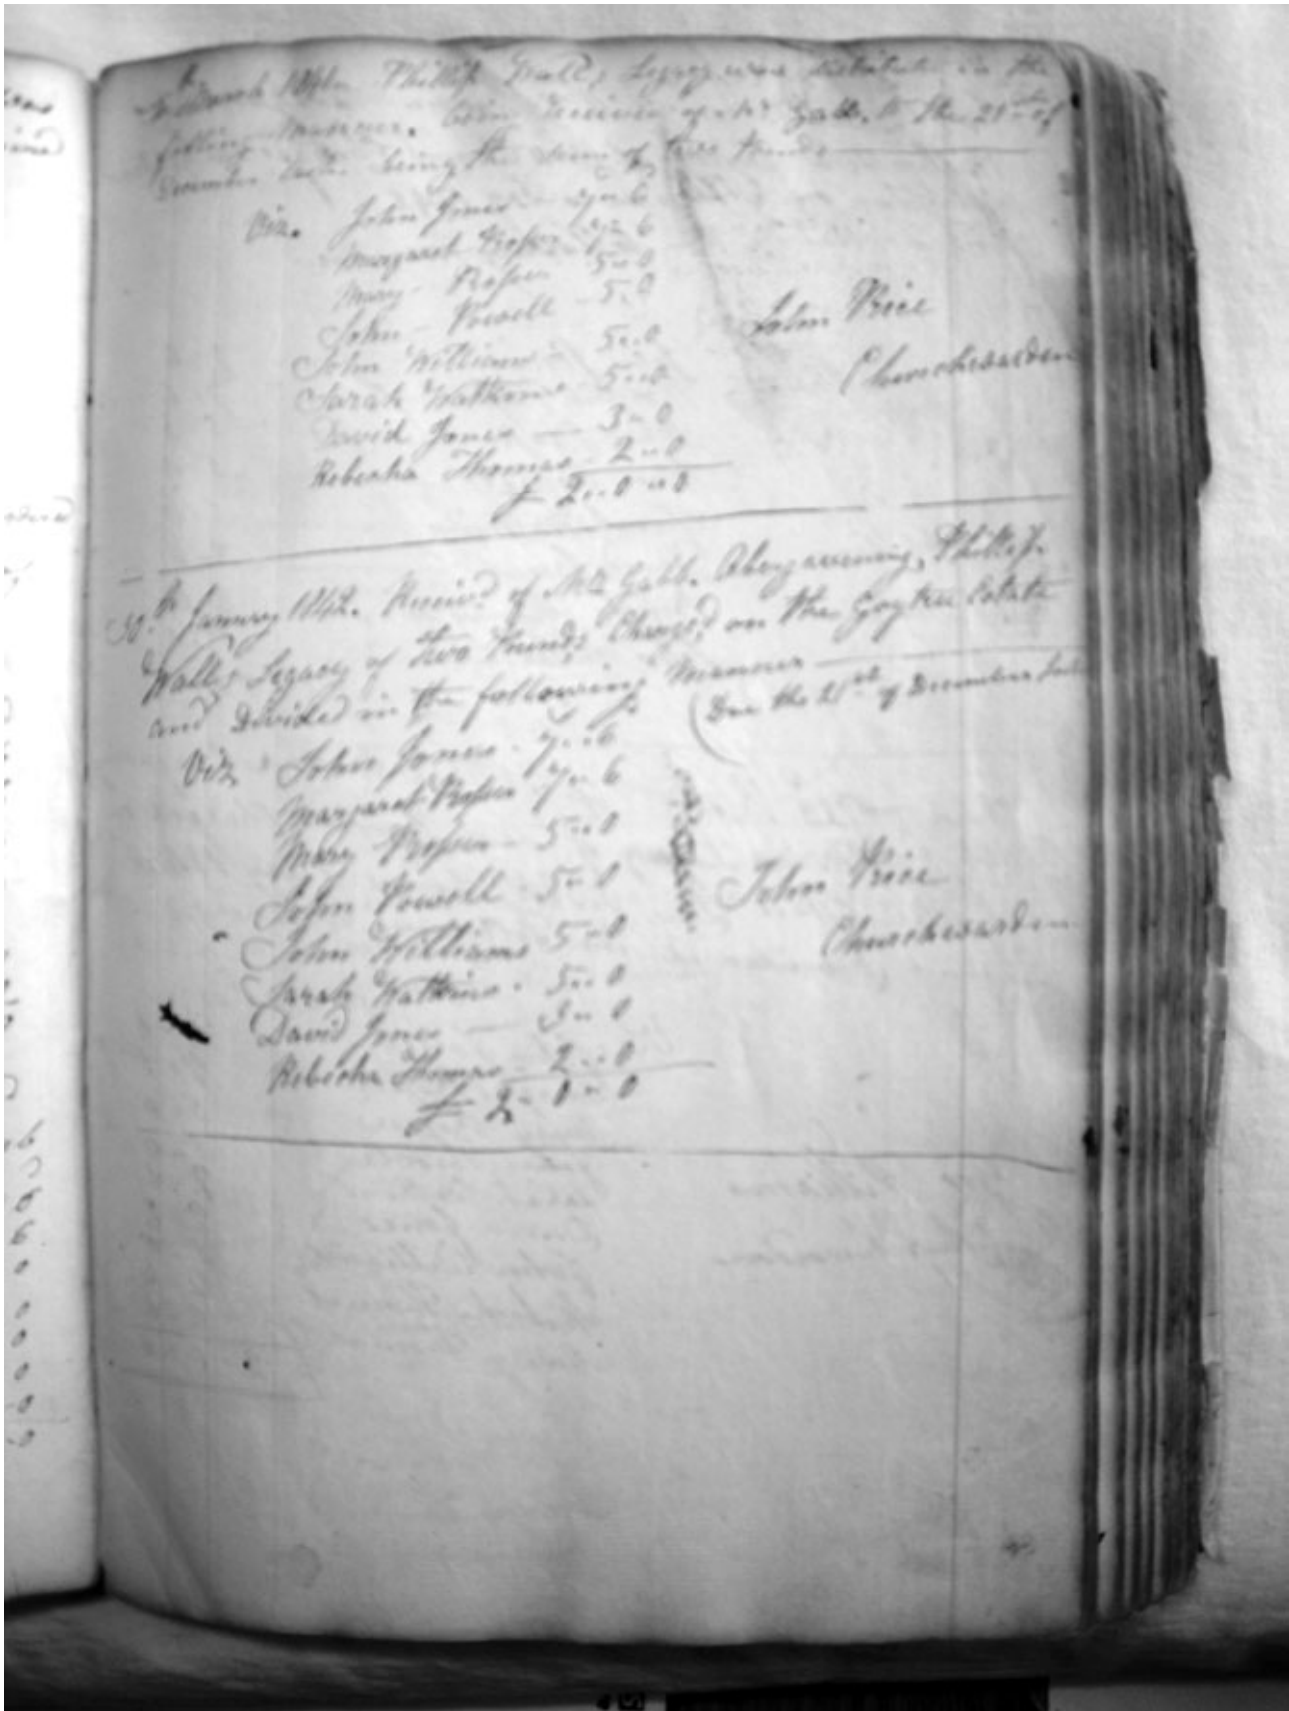 March 1841. Phillip Wall's Legacy was distributed in the
following manner. been received of Mr Gabb. to the 21st of
December last. being the sum of two Pounds
Viz. John Jones - 7 - 6
Margaret Prosser - 7 - 6
Mary - Prosser 5 - 0
John - Powell 5 - 0
John Williams 5 - 0
Sarah Watkins 5 - 0
David Jones — 3 - 0
Rebecka Thomas - 2 - 0
£ 2 - 0 - 0
John Price
Churchwarden
30th January 1842. Receiv'd of Mr Gabb. Abergavenny, Phillip
Wall's Legacy of two Pounds Charg'd on the Goytre Estate
and Divided in the following Manner
(Due the 21st of December last
Viz John Jones - 7 - 6
Margaret Prosser 7 - 6
Mary Prosser - 5 - 0
John Powell - 5 - 0
John Williams 5 - 0
Sarah Watkins - 5 - 0
David Jones — 3 - 0
Rebecka Thomas - 2 - 0
£ 2 - 0 - 0
John Price
Churchwarden